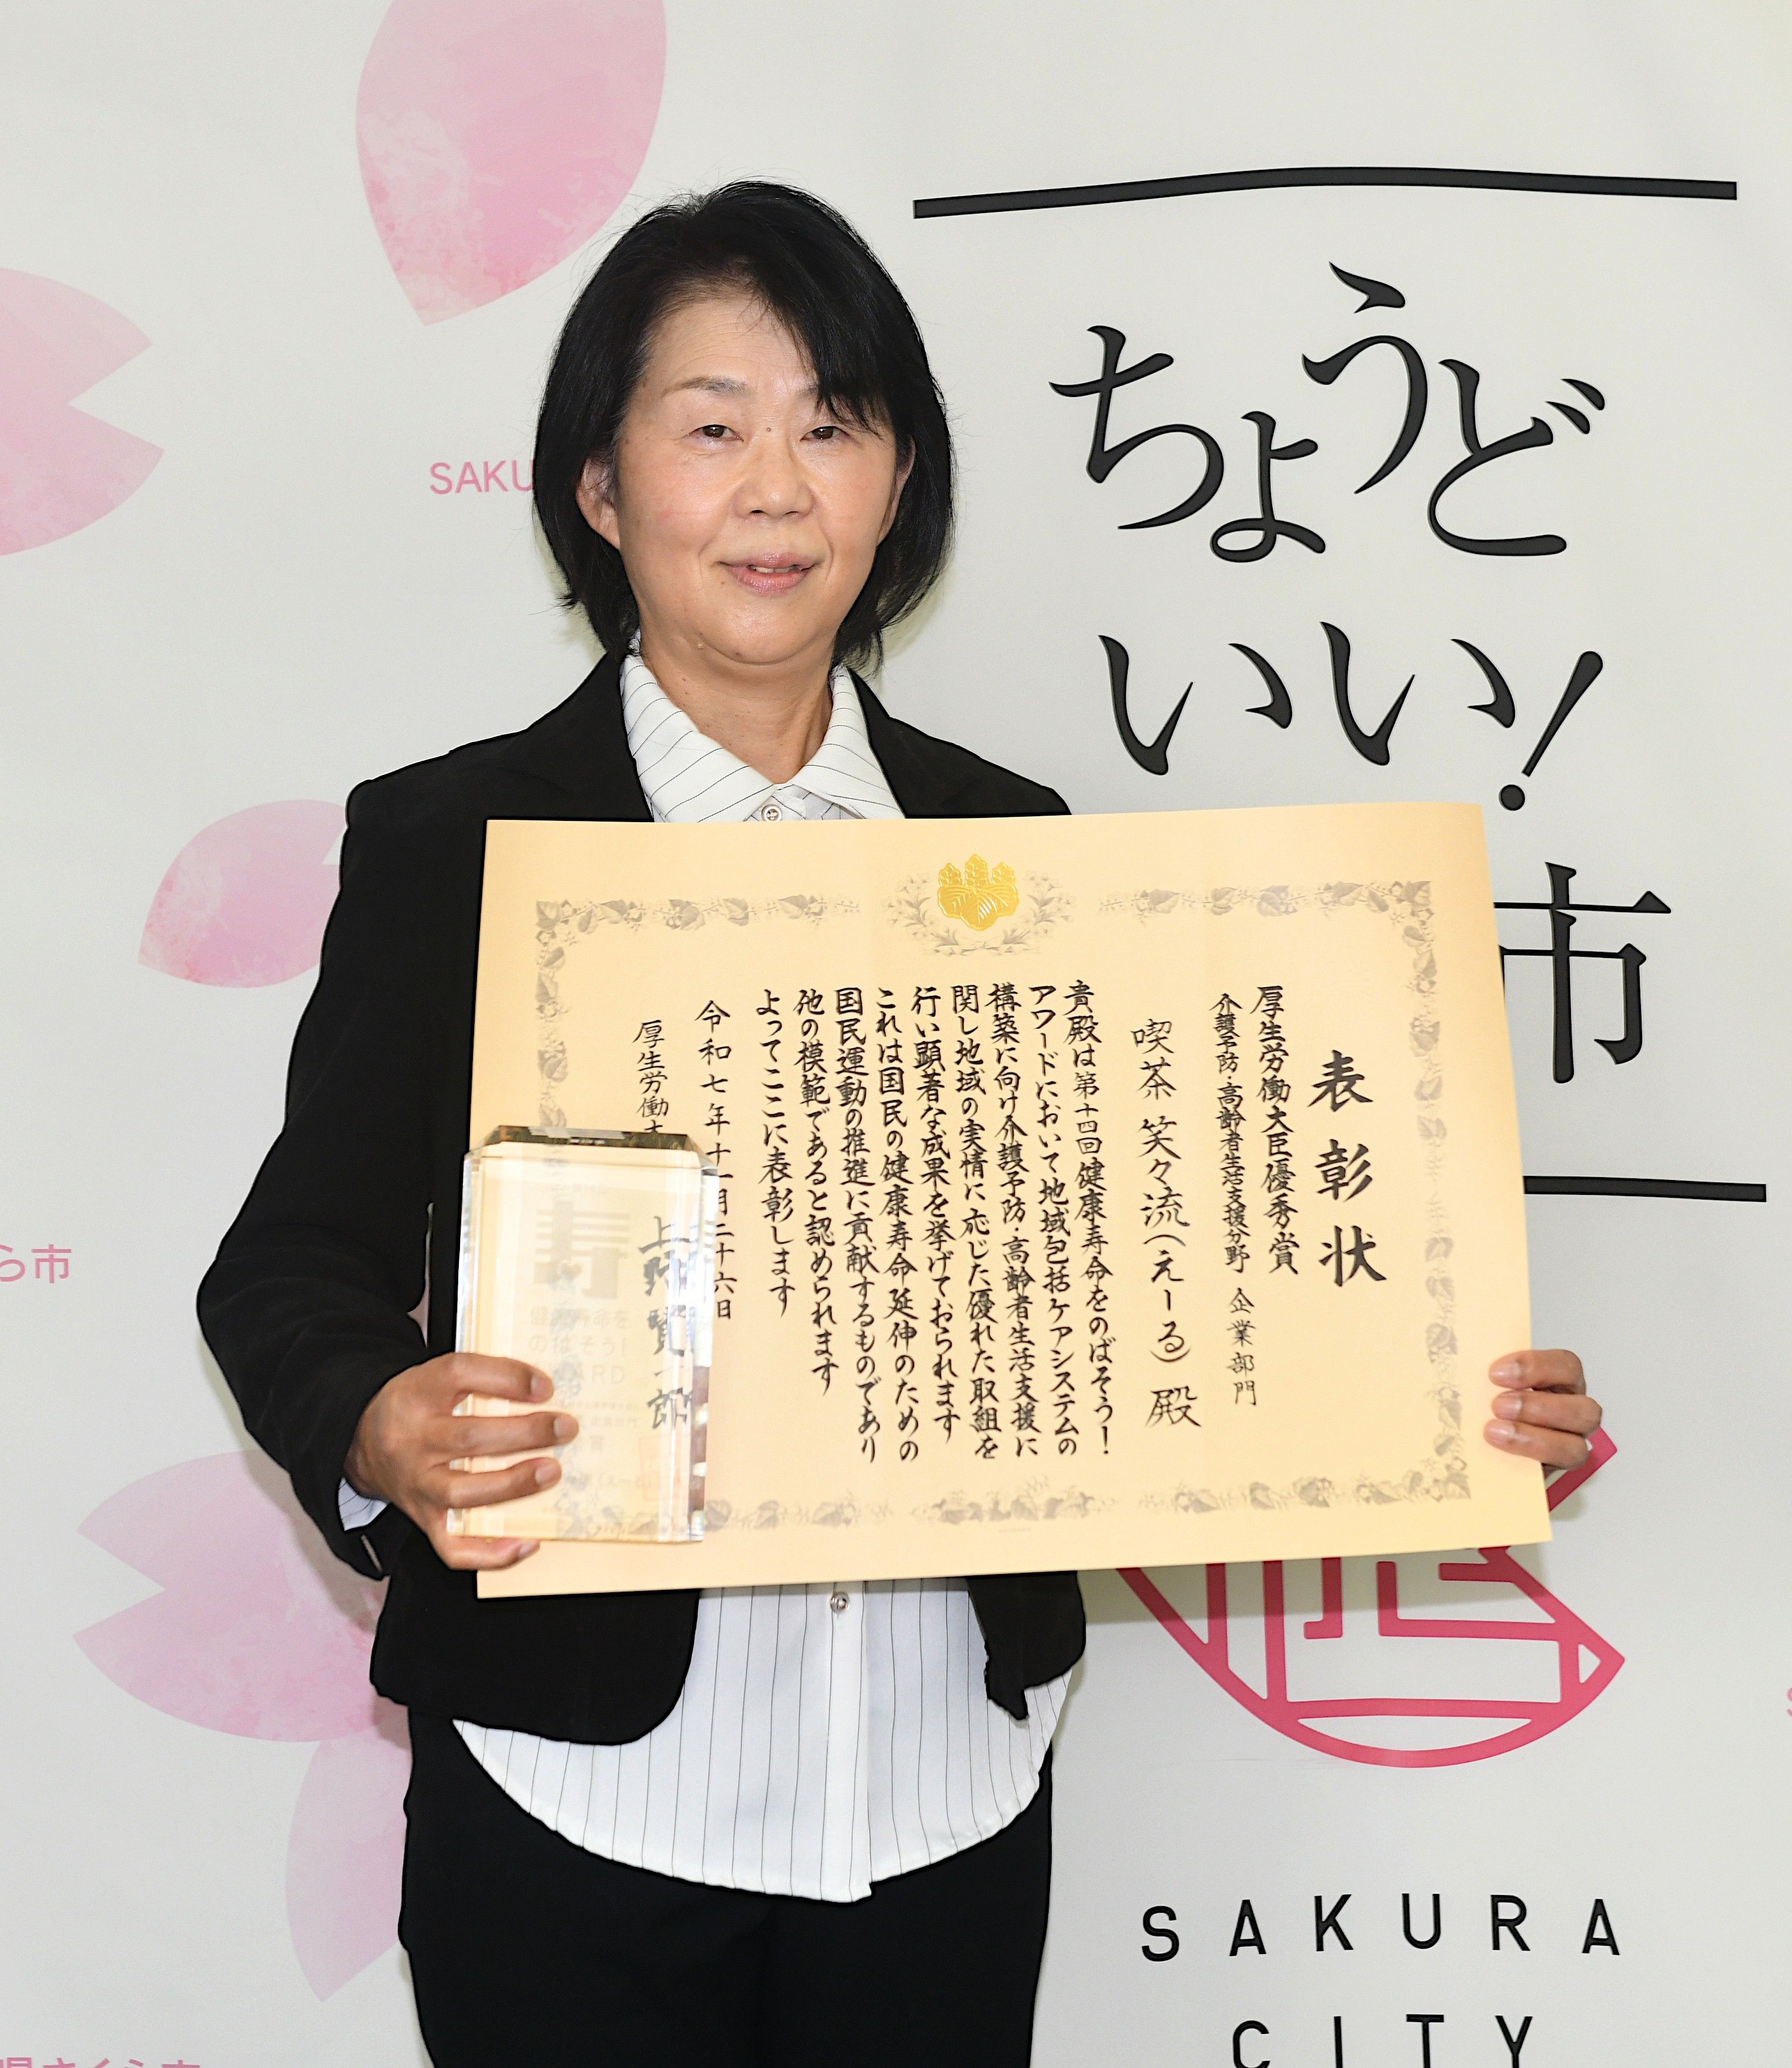 ちょうど
いい！
市
SAKU
ら市
表彰状
厚生労働大臣優秀賞
介護予防・高齢者生活支援分野　企業部門
喫茶　笑々流（えーる）　殿
貴殿は第十四回健康寿命をのばそう！
アワードにおいて地域包括ケアシステムの
構築に向け介護予防・高齢者生活支援に
関し地域の実情に応じた優れた取組を
行い顕著な成果を挙げておられます
これは国民の健康寿命延伸のための
国民運動の推進に貢献するものであり
他の模範であると認められます
よってここに表彰します
令和七年十一月二十六日
厚生労働
上野賢一郎
寿
健康寿命を
のばそう！
AWARD
SAKURA
CITY
県さくら市